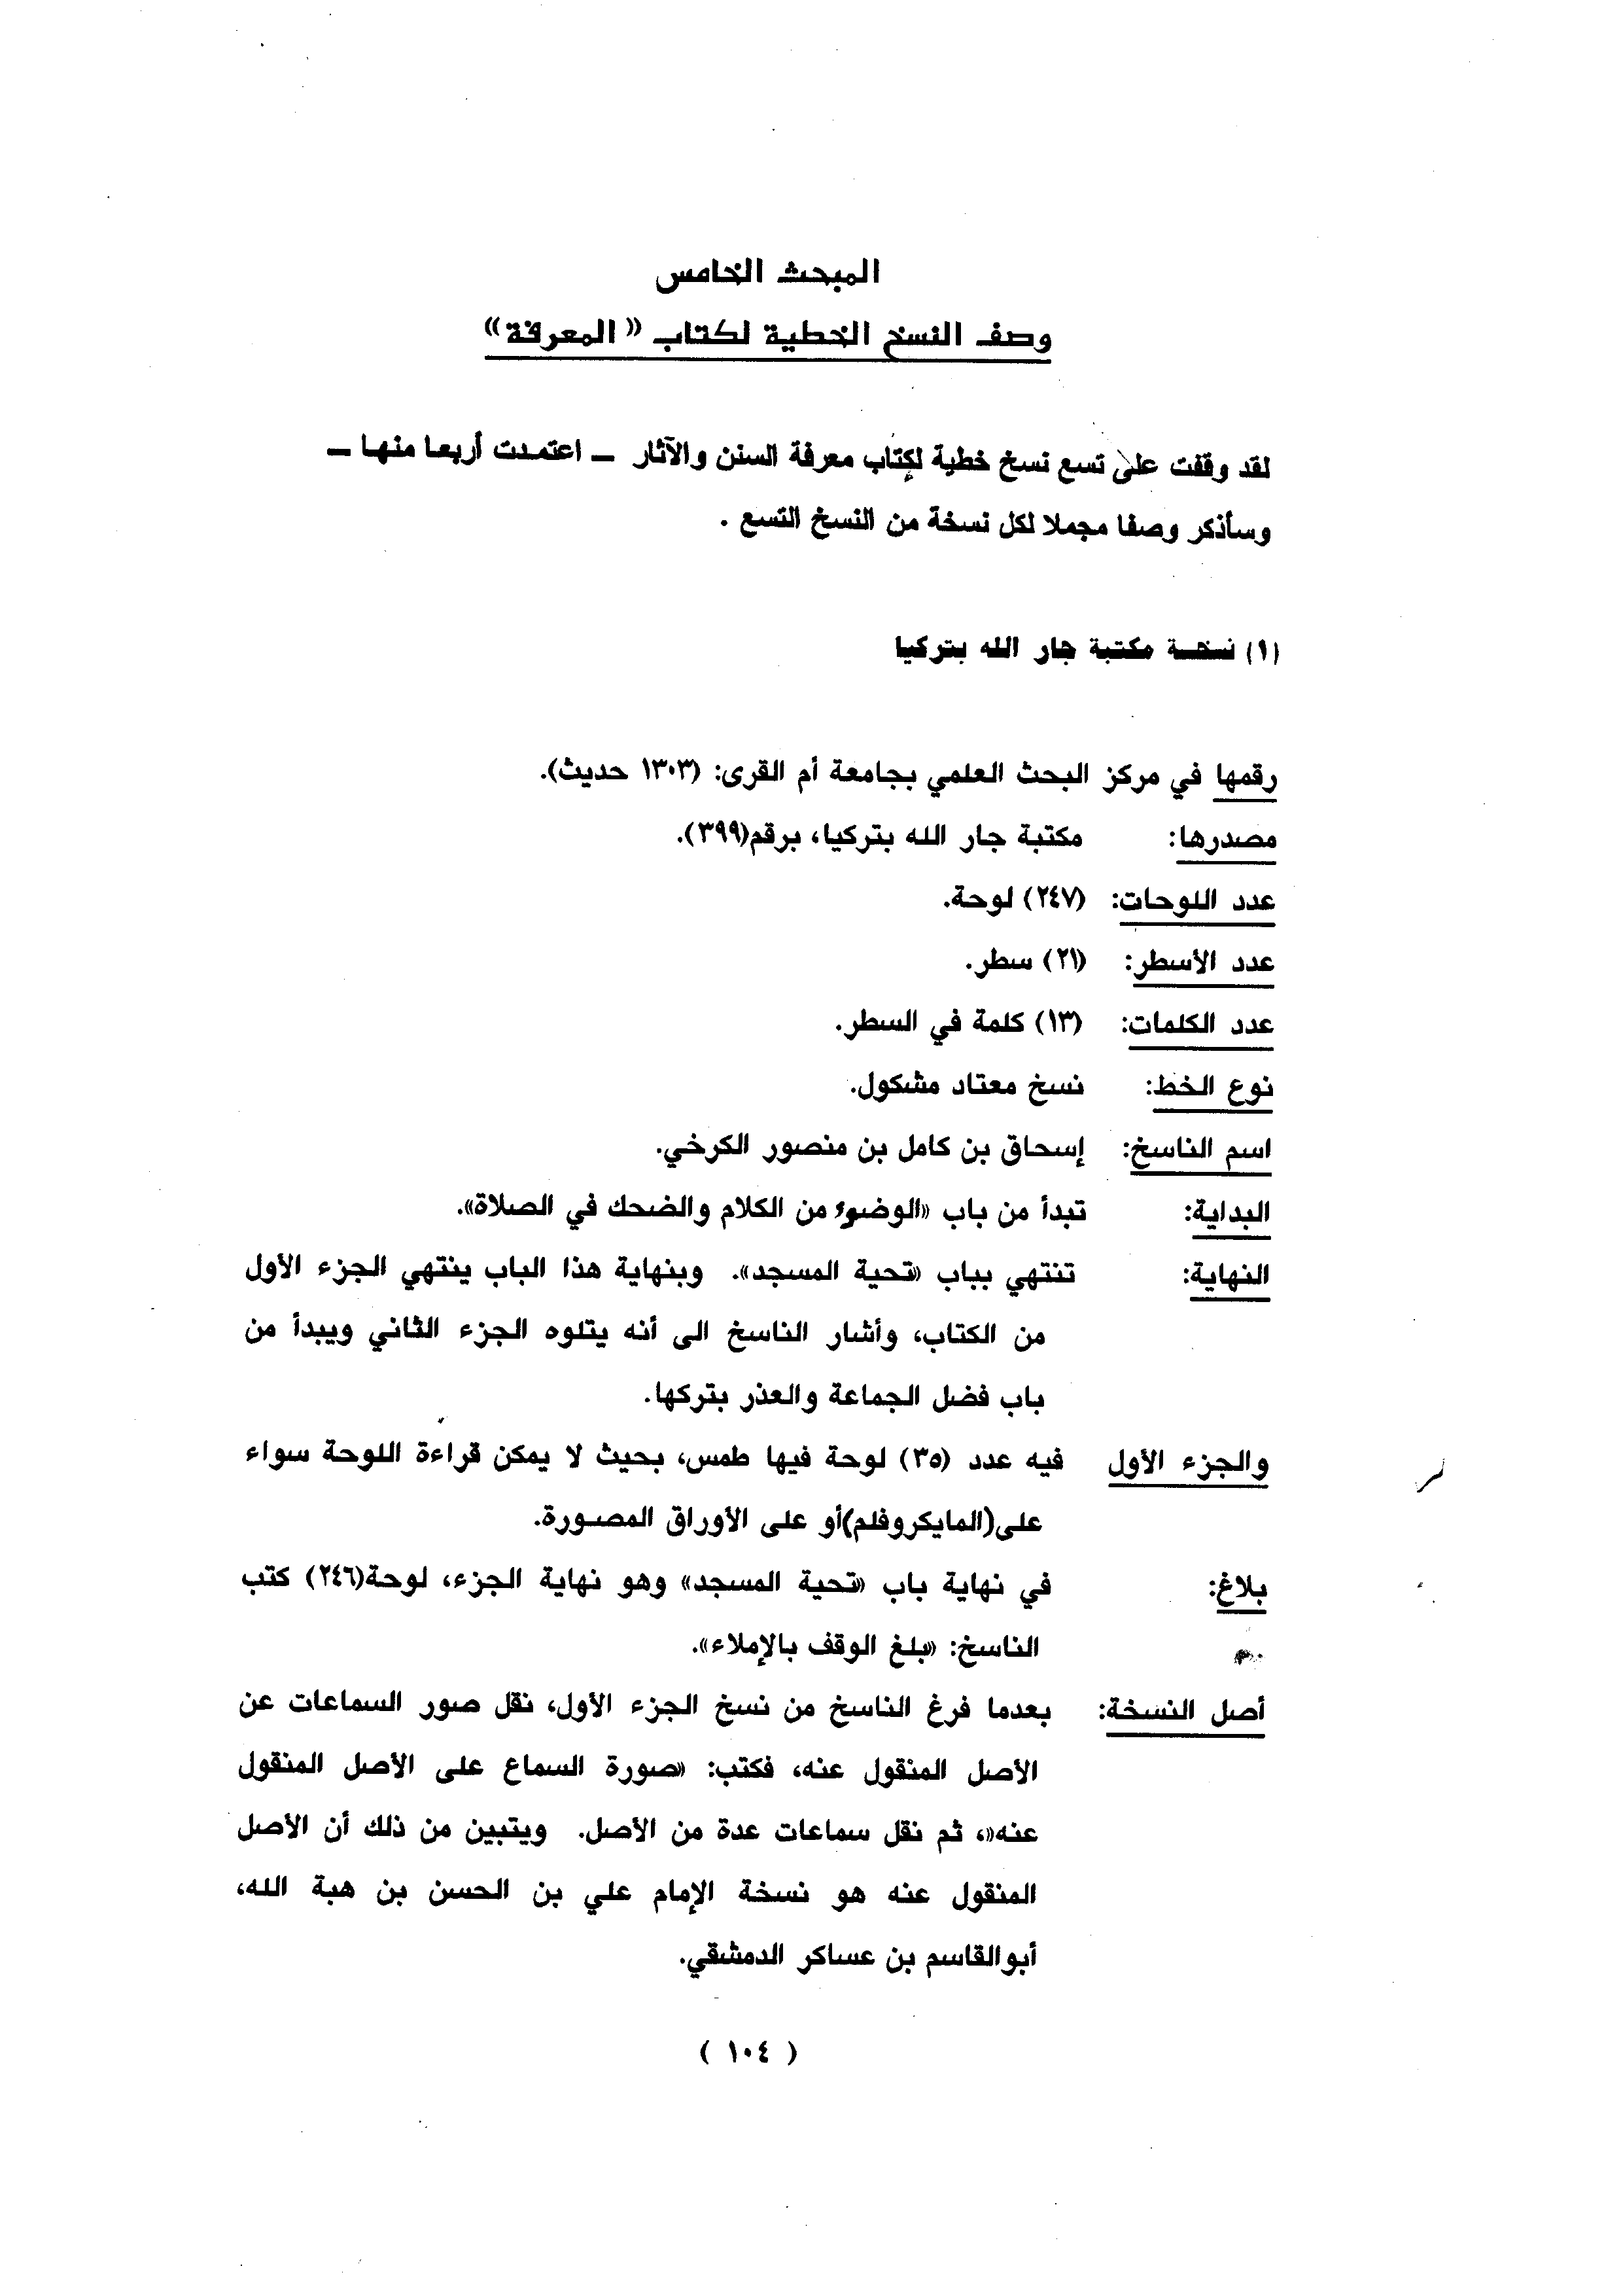 المبحث الخامس
وصف النسخ الخطية لكتاب «المعرفة»
لقد وقفت على تسع نسخ خطية لكتاب معرفة السنن والآثار – اعتمدت أربعا منها –
وسأذكر وصفا مجملا لكل نسخة من النسخ التسع .
(١) نسخة مكتبة جار الله بتركيا
رقمها في مركز البحث العلمي بجامعة أم القرى: (١٣٠٣ حديث).
مصدرها: مكتبة جار الله بتركيا، برقم(٣٩٩).
عدد اللوحات: (٢٤٧) لوحة.
عدد الأسطر: (٢١) سطر.
عدد الكلمات: (١٣) كلمة في السطر.
نوع الخط: نسخ معتاد مشكول.
اسم الناسخ: إسحاق بن كامل بن منصور الكرخي.
البداية: تبدأ من باب «الوضوء من الكلام والضحك في الصلاة».
النهاية: تنتهي بباب «تحية المسجد». وبنهاية هذا الباب ينتهي الجزء الأول
من الكتاب، وأشار الناسخ الى أنه يتلوه الجزء الثاني ويبدأ من
باب فضل الجماعة والعذر بتركها.
والجزء الأول فيه عدد (٣٥) لوحة فيها طمس، بحيث لا يمكن قراءة اللوحة سواء
على(المايكروفلم)أو على الأوراق المصورة.
بلاغ: في نهاية باب «تحية المسجد» وهو نهاية الجزء، لوحة(٢٤٦) كتب
الناسخ: «بلغ الوقف بالإملاء».
أصل النسخة: بعدما فرغ الناسخ من نسخ الجزء الأول، نقل صور السماعات عن
الأصل المنقول عنه، فكتب: «صورة السماع على الأصل المنقول
عنه«، ثم نقل سماعات عدة من الأصل. ويتبين من ذلك أن الأصل
المنقول عنه هو نسخة الإمام علي بن الحسن بن هبة الله،
أبوالقاسم بن عساكر الدمشقي.
( ١٠٤ )